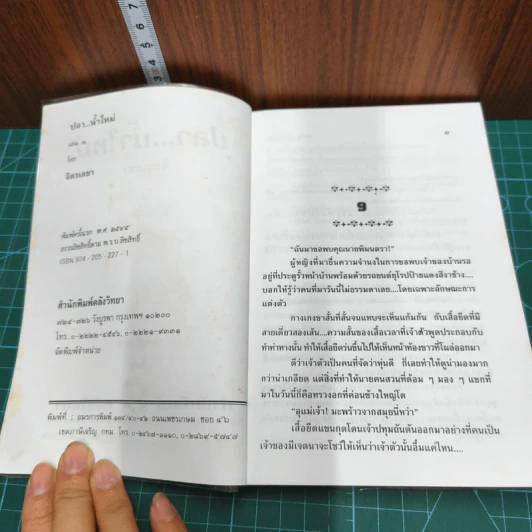 ปลา...น้ำใหม่
เล่ม ๑
โดย
พิมพ์ครั้งแรก พ.ศ. ๒๕๔๕
สงวนลิขสิทธิ์ตาม พ.ร.บ.ลิขสิทธิ์
ISBN 974 - 205 - 227 - 1
สำนักพิมพ์คลังวิทยา
๗๒๔-๗๒๖ วังบูรพา กรุงเทพฯ ๑๐๒๐๐
โทร. ๐-๒๒๒๒-๔๕๔๖, ๐-๒๒๒๑-๙๓๓๑
จัดพิมพ์จำหน่าย
พิมพ์ที่ : อมรการพิมพ์ ถนนเพชรเกษม ซอย ๔๖
เขตภาษีเจริญ กทม. โทร. ๐-๒๔๖๗-๑๑๑๐, ๐-๒๘๖๙-๕๗๔๗
๑
"ฉันมาขอพบคุณนายพิมนตรา!"
ผู้หญิงที่มายื่นความจำนงในการขอพบเจ้าของบ้านรอ
อยู่ที่ประตูรั้วหน้าบ้านพร้อมด้วยรถยนต์ยุโรปป้ายแดงสีงาช้าง....
บอกให้รู้ว่าคนที่มาวันนี้ไม่ธรรมดาเลย....โดยเฉพาะลักษณะการ
แต่งตัว
กางเกงขาสั้นที่สั้นจนแทบจะเห็นแก้มก้น กับเสื้อยืดที่มี
สายเดี่ยวสองเส้น....ความสั้นของเสื้อเวลาที่เจ้าตัวพูดประกอบกับ
ทำท่าทางนั้น ทำให้เสื้อยืดร่นขึ้นไปให้เห็นหน้าท้องขาวที่โผล่ออกมา
ดีว่าเจ้าตัวเป็นคนที่จัดว่าหุ่นดี ก็เลยทำให้ดูน่ามองมาก
กว่าน่าเกลียด แต่สิ่งที่ทำให้นายคนสวนที่ด้อม ๆ มอง ๆ แขกที่
มาในวันนี้ก็คือทรวงอกที่ค่อนข้างใหญ่โต
"อุแม่เจ้า! มะพร้าวจากสมุยนี่หว่า"
เสื้อยืดแขนกุดโดนเจ้าปทุมถันดันออกมาอย่างที่คนเป็น
เจ้าของมีเจตนาจะโชว์ให้เห็นว่าเจ้าตัวนั้นอึ๋มแค่ไหน....